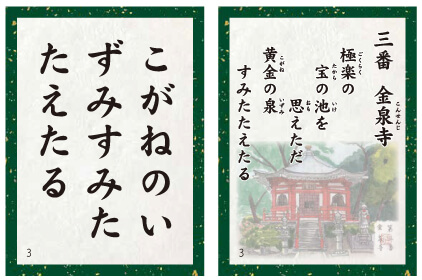 こがねのい
ずみすみた
たえたる
3
三番 金泉寺
こんせんじ
極楽の
ごくらく
宝の池を
たから いけ
思えただ
おも
黄金の泉
こがね いずみ
すみたたえたる
3